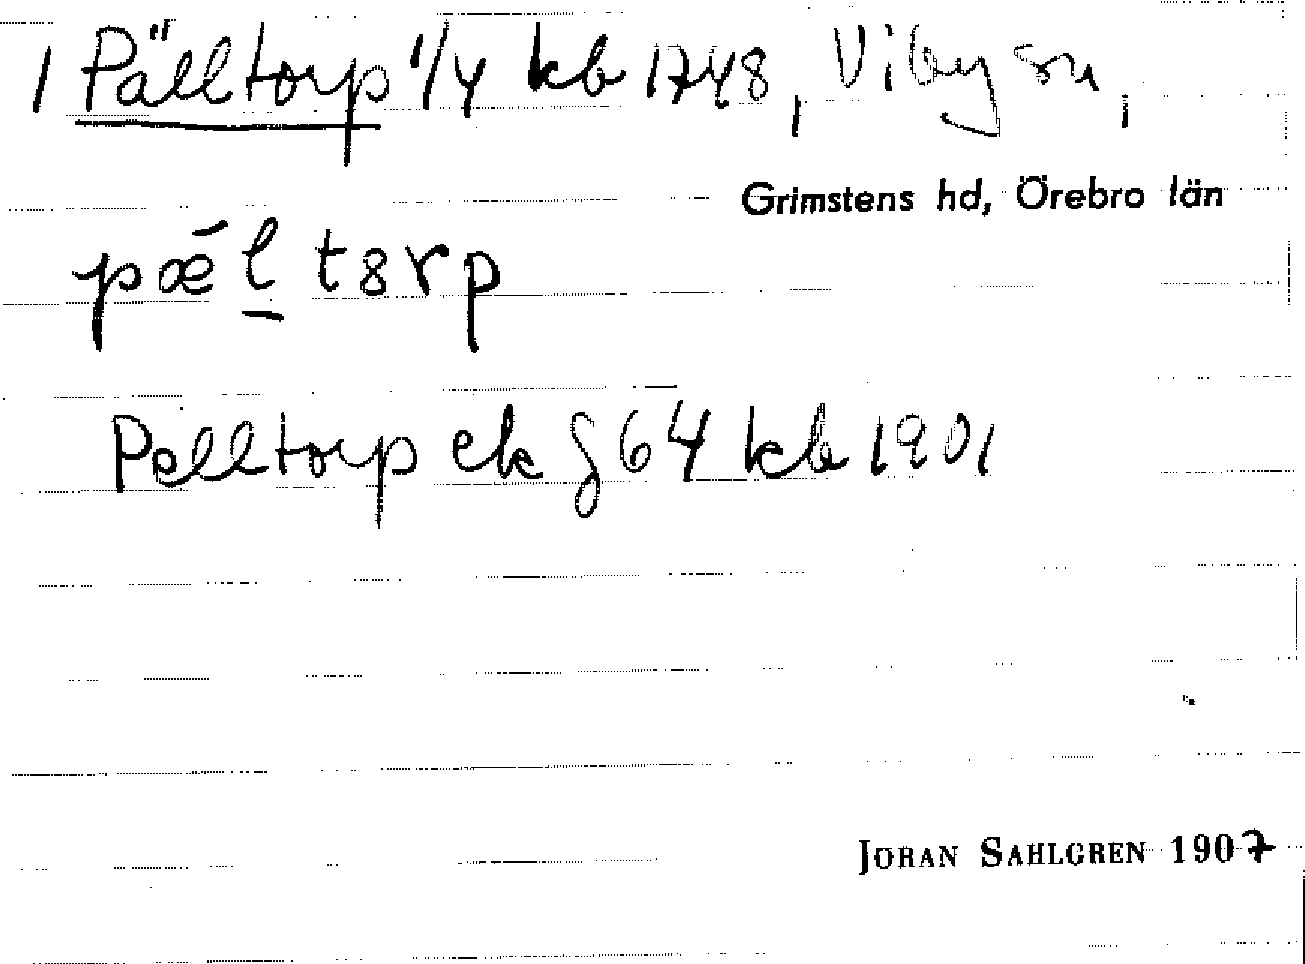 1 Pälltorp 1/4 kb 1748, Viby sn,
Grimstens hd, Örebro län
pǽl tɞrp
Pelltorp ek § 64 kb 1901
JORAN SAHLGREN 1907